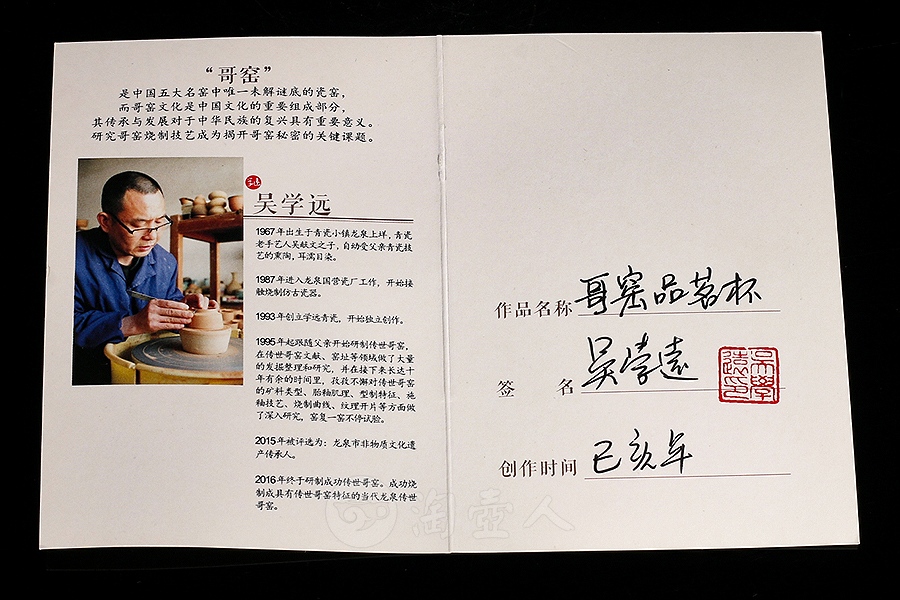 “哥窑”
是中国五大名窑中唯一未解谜底的瓷窑，
而哥窑文化是中国文化的重要组成部分，
其传承与发展对于中华民族的复兴具有重要意义。
研究哥窑烧制技艺成为揭开哥窑秘密的关键课题。
吴学远
1967年出生于青瓷小镇龙泉上垟，青瓷
老手艺人吴献文之子，自幼受父亲青瓷技
艺的熏陶，耳濡目染。
1987年进入龙泉国营瓷厂工作，开始接
触烧制仿古瓷器。
1993年创立学远青瓷，开始独立创作。
1995年起跟随父亲开始研制传世哥窑，
在传世哥窑文献、窑址等领域做了大量
的发掘整理和研究，并在接下来长达十
年有余的时间里，孜孜不懈对传世哥窑
的矿料类型、胎釉肌理、型制特征、施
釉技艺、烧制曲线、纹理开片等方面做
了深入研究，窑复一窑不停试验。
2015年被评选为：龙泉市非物质文化遗
产传承人。
2016年终于研制成功传世哥窑。成功烧
制成具有传世哥窑特征的当代龙泉传世
哥窑。
作品名称 哥窑品茗杯
签 名 吴学远
吴學遠印
创作时间 己亥年
淘壶人